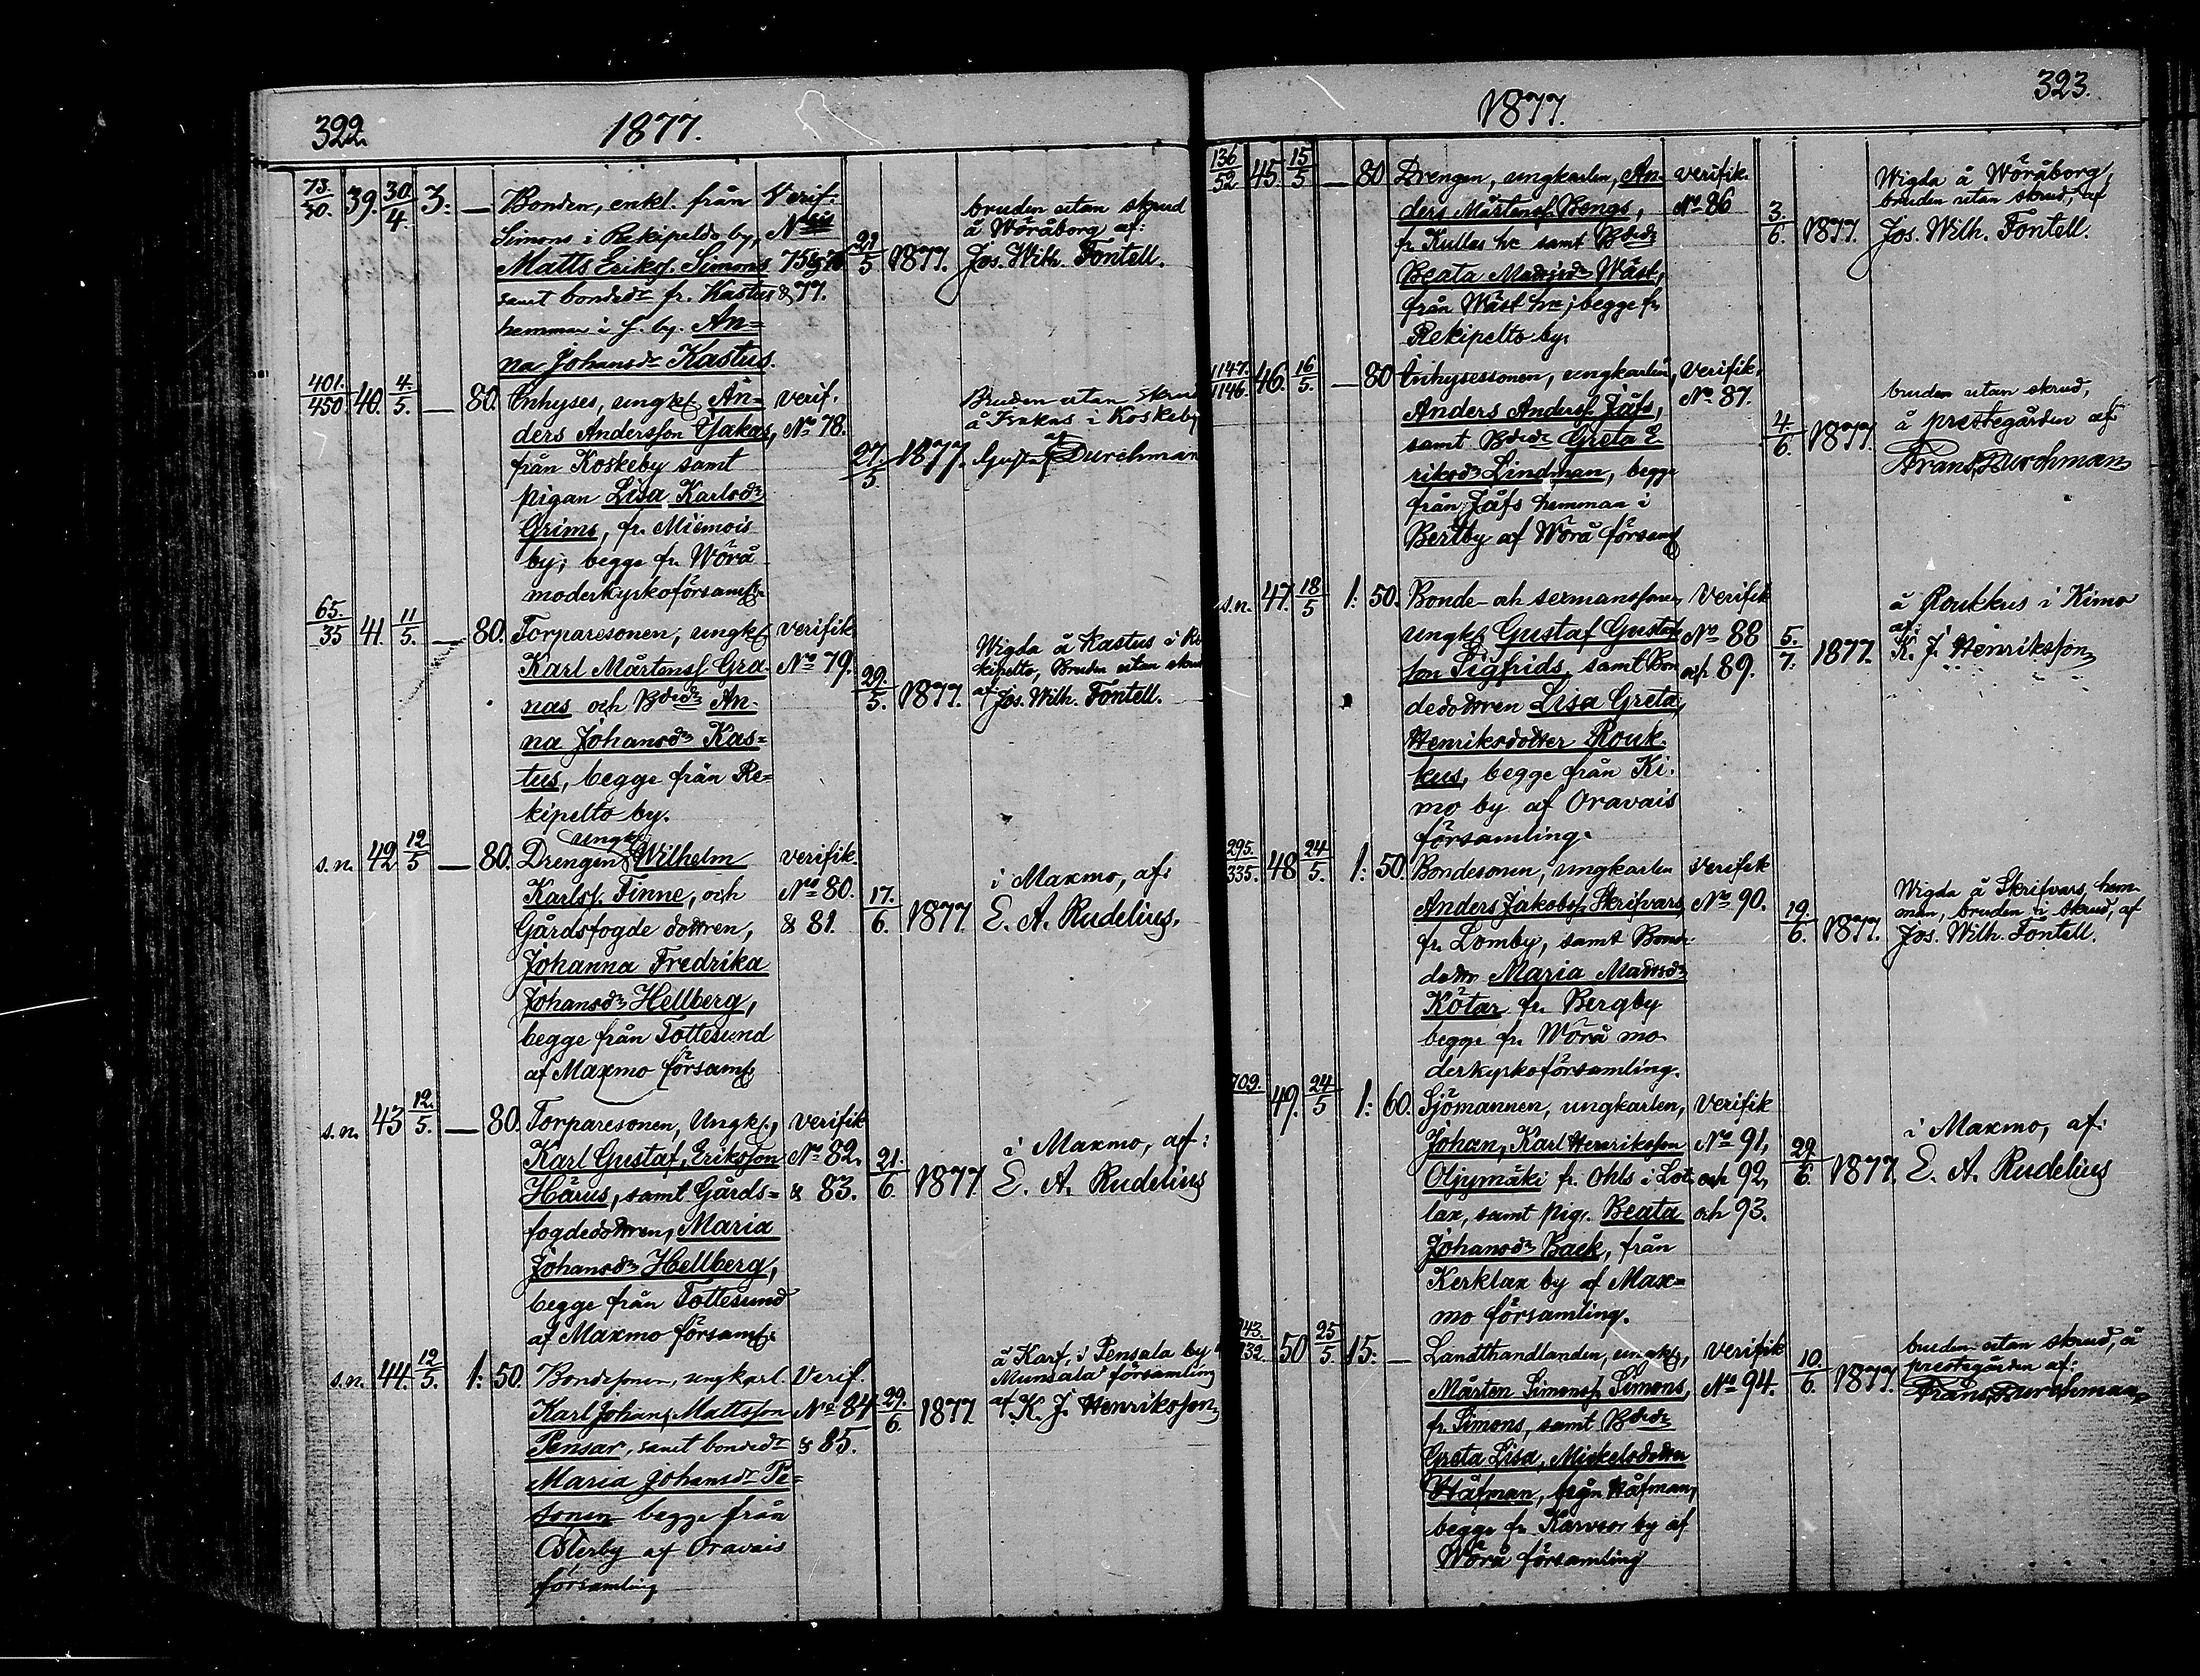 322.
1877.
73. 39. 30. 3: — Bonden, enkl. från Verif:
30. 4.
Simons i Rekipeldo by, Nis
Matts Eriks. Simons 75, 76 21/5 1877.
samt bondedr fr. Kastus & 77.
hemman i s. by. An=
na Johansdr Kastus.
bruden utan skrud
å Wöråborg af:
Jos. Wilh. Fontell.
401. 40. 4. — 80. Inhyses, ungk. An= verif.
450 5.
ders Andersson Jakas, No 78.
från Koskeby samt 27/5. 1877.
pigan Lisa Karlsdr
Grims, fr. Miemois
by; begge fr. Wörå
moderkyrkoförsaml.
Bruden utan skrud
å Jakas i Koskeby
af
Gustaf Durchman
65. 41. 11 — 80. Torparesonen, ungk. verifik
35 5.
Karl Mårtens. Gra No 79.
nas och Bdedr An- 29./5. 1877.
na Johansdr Kas=
tus, begge från Re=
kipelto by.
Wigda å Kastus i Re
kipelto, Bruden utan skrud
af Jos. Wilh. Fontell.
s.n. 42 12/5 — 80. Drengen, ungk. Wilhelm verifik.
Karls. Finne, och No 80. 17./6. 1877
Gårdsfogde dottren, & 81.
Johanna Fredrika
Johansdr Hellberg,
begge från Tottesund
af Maxmo församl.
i Maxmo, af:
E. A. Rudelius.
s.n. 43 12./5. — 80. Torparesonen, Ungk., verifik
Karl Gustaf, Eriksson No 82. 21/6. 1877
Hårus, samt Gårds= & 83.
fogdedottren, Maria
Johansdr Hellberg,
begge från Tottesund
af Maxmo församl.
i Maxmo, af:
E. A. Rudelius
s.n. 44. 12/5. 1: 50. Bondesonen, ungkarl. Verif.
Karl Johan, Mattsson No 84 29./6. 1877
Pensar, samt bondedr & 85.
Maria Johansdr Pe=
sonen begge från
Österby af Oravais
församling
å Karf, i Pensala by
Munsala församling
af K. J. Henriksson
323.
1877.
136/52 45. 15/5 — 80 Drengen, ungkarlen, An- verifik.
ders Mårtens. Bengs, No 86 3./6. 1877.
fr Kullas hn samt Bdedr
Beata Mattsdr Wäst,
från Wäst hn; begge fr
Rekipelto by.
Wigda å Wöråborg,
bruden utan skrud, af
Jos. Wilh. Fontell.
1147./1146. 46. 16/5. — 80 Inhysessonen, ungkarlen, Verifik.
Anders Anders. Jåfs, No 87.
samt Bdedr Greta E 4./6. 1877.
riksdr Lindman, begge
från Jåfs hemman i
Bertby af Wörå församl
bruden utan skrud,
å prestegården af:
Frans Durchman
s.n. 47. 18/5 1: 50. Bonde- och sexmanssonen, Verifik
ungk. Gustaf Gustafs No 88 5./7. 1877.
son Sigfrids, samt Bon och 89.
dedottren Lisa Greta,
Henriksdotter Rouk-
kus, begge från Ki-
mo by af Oravais
församling.
å Roukkus i Kimo
af:
K. J. Henriksson
295./335. 48 24/5. 1: 50. Bondesonen, ungkarlen Verifik
Anders Jakobs. Skrifvars, No 90. 19./6. 1877
fr. Lomby, samt Bonde
dottr Maria Mattsdr
Kötar fr. Bergby
begge fr. Wörå mo
derkyrkoförsamling.
Wigda å Skrifvars, hem-
man, bruden i skrud, af
Jos. Wilh. Fontell.
709. 49. 24/5 1: 60. Sjömannen, ungkarlen, Verifik
Johan, Karl Henriksson No 91, 29/6. 1877.
Oljymäki fr. Ohls i Lot och 92,
lax, samt pig. Beata och 93.
Johansdr Back, från
Kerklax by af Max=
mo församling.
i Maxmo, af:
E. A. Rudelius
943./732. 50 25/5. 15: — Landthandlanden, ungk., verifik
Mårten Simons. Simons, No 94. 10./6. 1877.
fr. Simons, samt Bdedr
Greta Lisa, Mickelsdotter
Ståfman, från Ståfman,
begge fr. Karvsor by af
Wörå församling
bruden utan skrud, å
prestegården af:
Frans Durchman